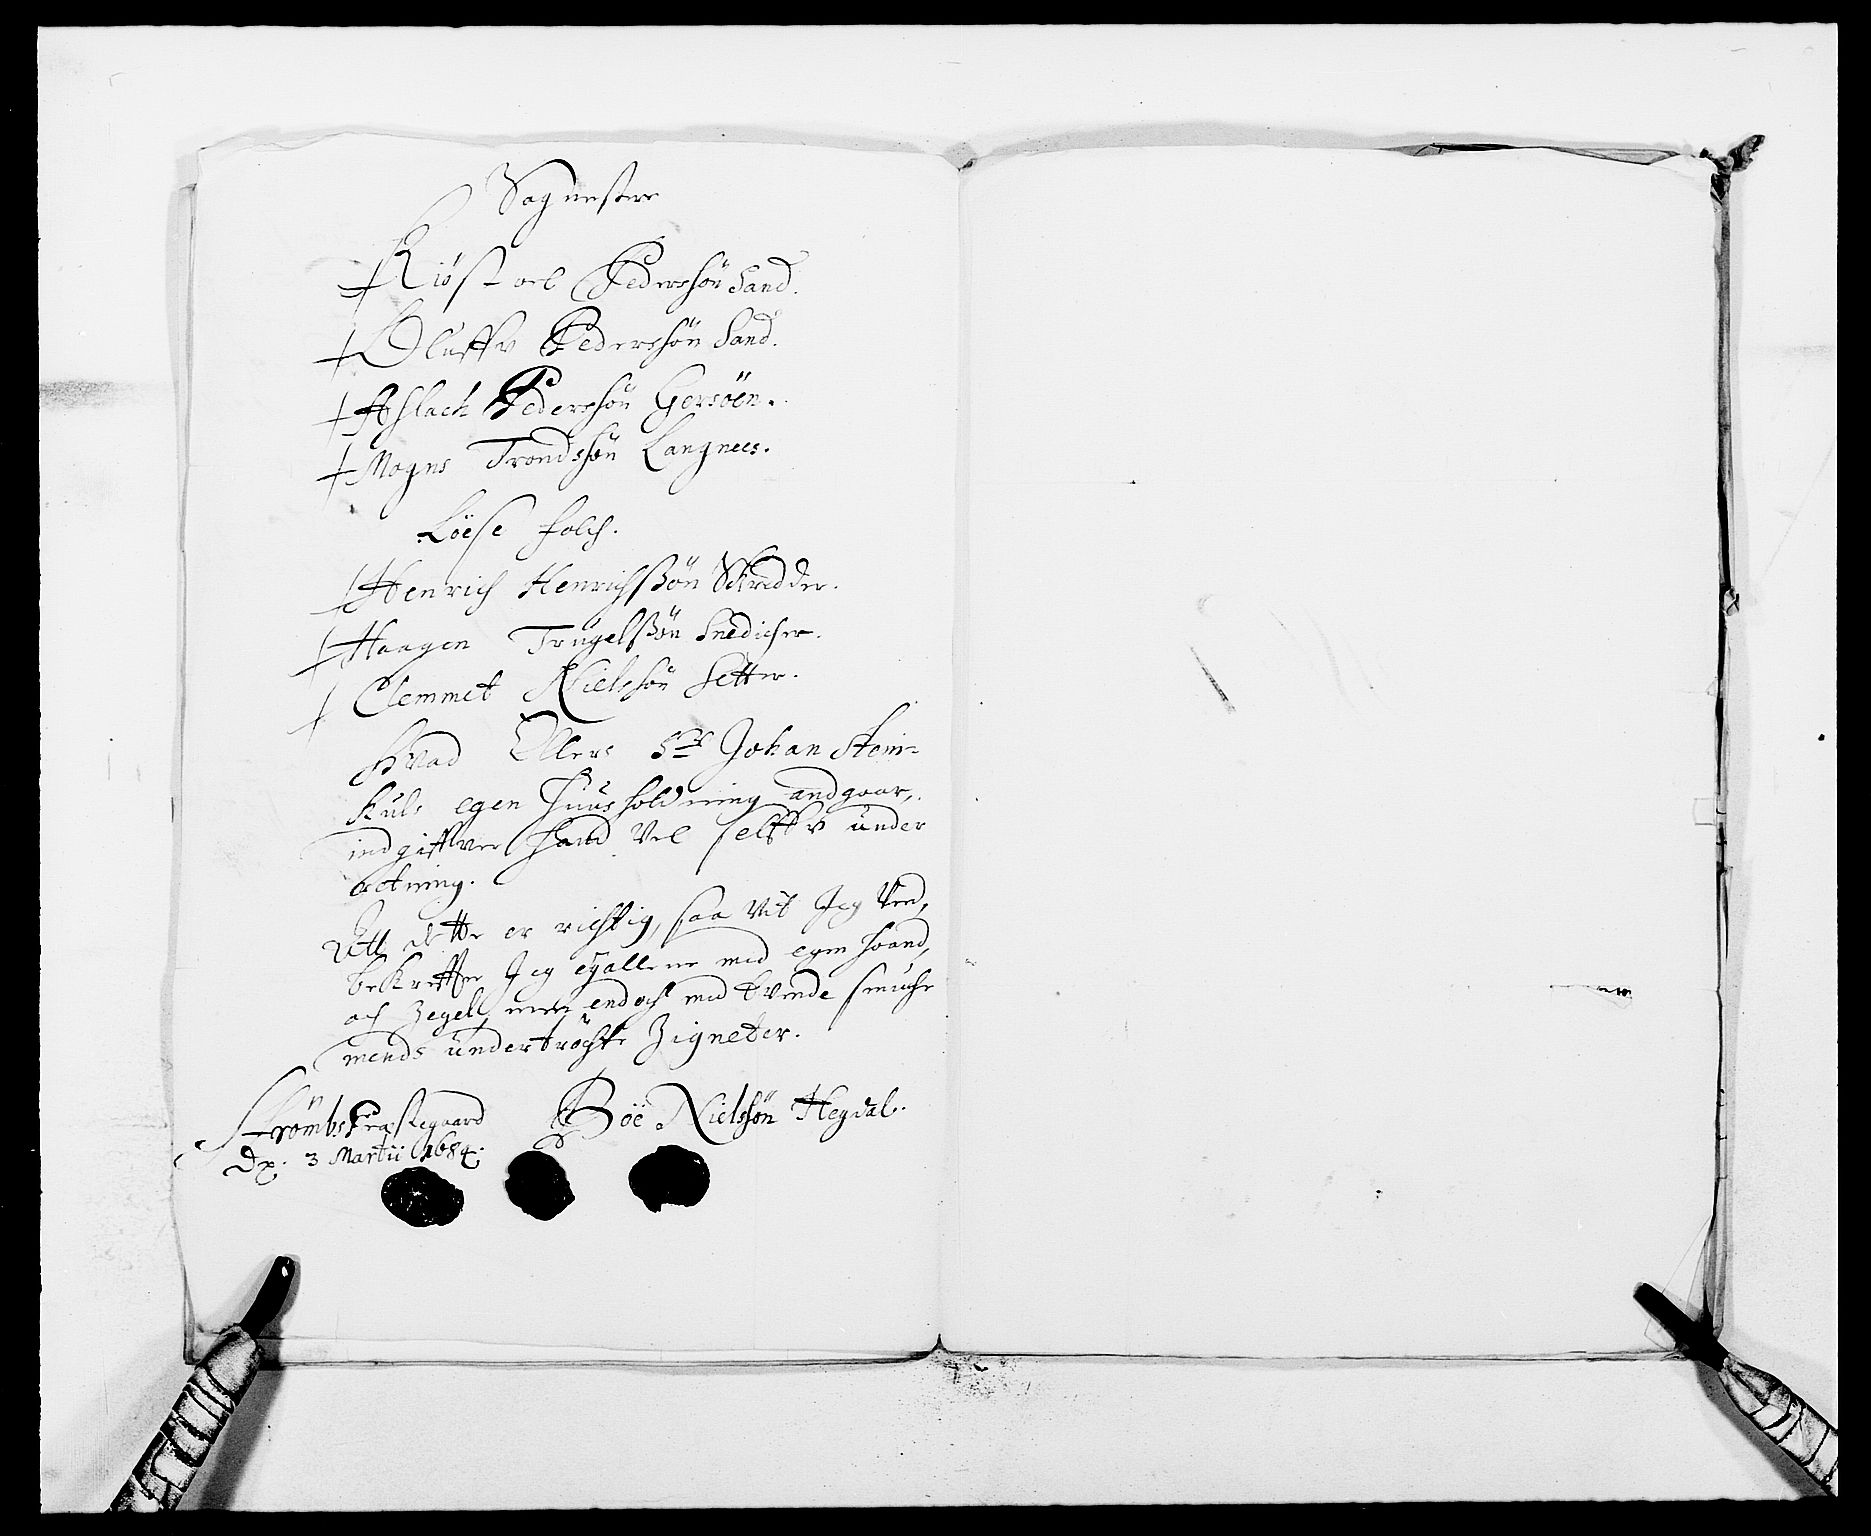 Sagmestere
Kiøstoel Pederssön Sand.
Oluffv Pederssön Sand.
Aslach Pederssön Gersöen.
Mogns Trondssön Langnees.
Löese folch.
Henrich Henrichssön Skredder.
Haagen Trugelssön Snedicher.
Clemmet Nielssön Setter.
Hvad Ellers Sr Johan Stein-
kuls egen Huusholdning andgaar,
indgiffver hand Vel selffv under
retning.
Att dette er richtig, saa vit Jeg Veed,
bekreffter Jeg eÿ allene med egen haand,
och Zegell, men endoch med tvende
mends undertröchte Zigneter.
Strömbs Præstegaard
Dx. 3 Martii 1684.
Boe Nielssön Hegdal.